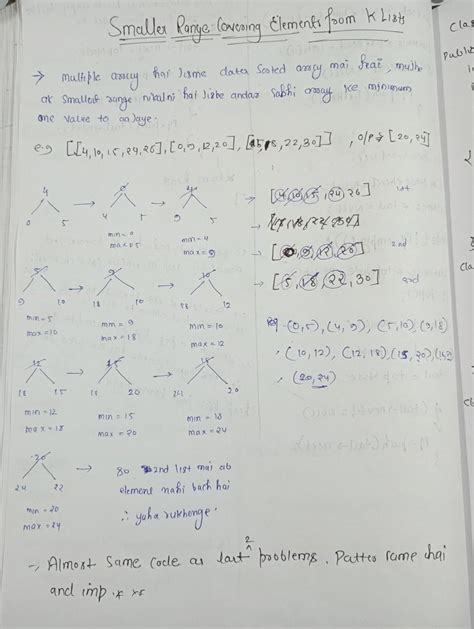 Smaller Range Covering Elements from K Lists
→ multiple array hai jisme data sorted array mai hai, mujhe
ek smallest range nikalni hai jiske andar sabhi array ke minimum
one value to aajaye.
e.g [[4,10,15,24,26], [0,9,12,20], [5,18,22,30]] , o/p → [20,24]
4
0 5
→
0
4 5
min = 0
max = 5
→
4
9 5
min = 4
max = 9
→ [4, 10, 15, 24, 26] 1st
→ [0, 9, 12, 20] 2nd
→ [5, 18, 22, 30] 3rd
5
9 10
min = 5
max = 10
→
9
18 10
min = 9
max = 18
→
10
18 12
min = 10
max = 12
(0,5), (4,9), (5,10), (9,18)
, (10,12), (12,18), (15,20),
, (20,24)
12
18 15
min = 12
max = 18
→
15
18 20
min = 15
max = 20
→
18
24 20
min = 18
max = 20
20
24 22
min = 20
max = 24
→ so 2nd list mai ab
element nahi bach hai
∴ yaha rukhenge
→ Almost same code as last 2 problems. Patter same hai
and imp. * **